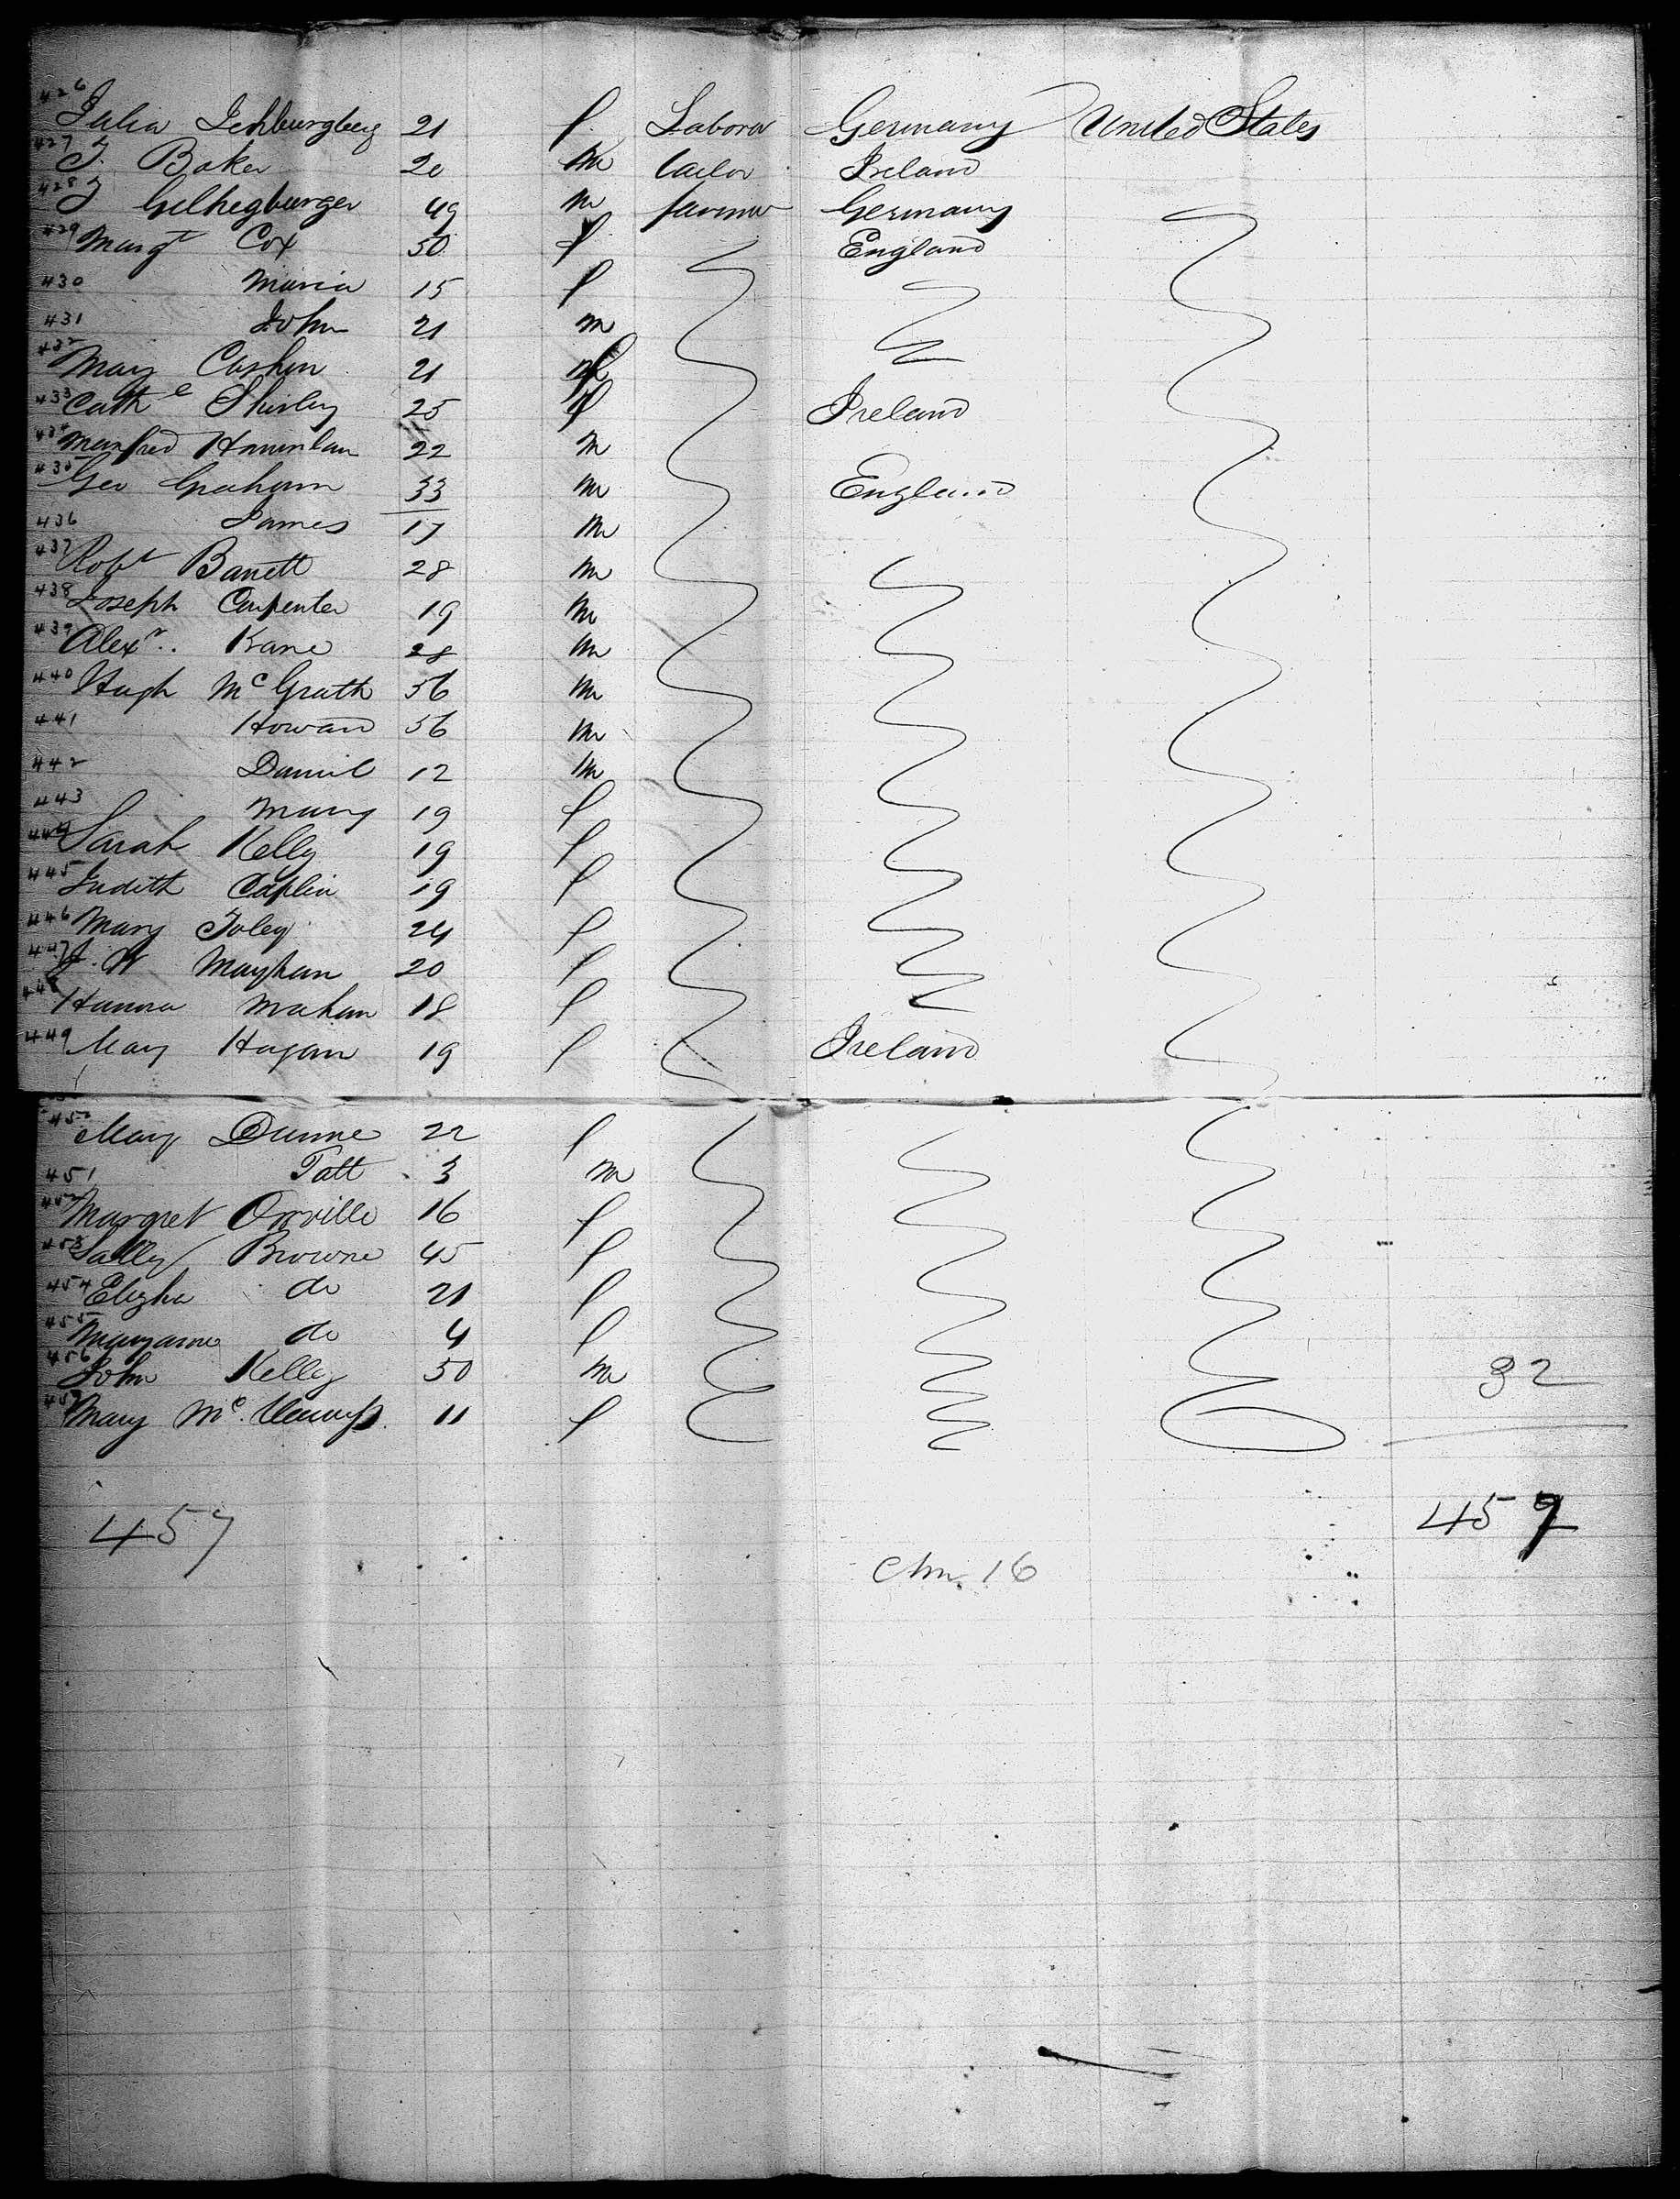 426 Julia 21 f. Laborer Germany United States
427 J. Baker 20 m tailor Ireland
428 J 49 m farmer Germany
429 Margt Cox 50 f England
430 Maria 15 f
431 John 21 m
432 Mary Cashin 21 f
433 Cathe Shirley 25 f Ireland
434 22 m
435 Geo Graham 33 m England
436 James 17 m
437 Robt Barrett 28 m
438 Joseph Carpenter 19 m
439 Alexr. Kane 28 m
440 Hugh McGrath 56 m
441 Howard 56 m
442 Daniel 12 m
443 Mary 19 f
444 Sarah Kelly 19 f
445 Judith Caplin 19 f
446 Mary Foley 24 f
447 J. W Mayhan 20 f
448 Hanora Mahan 18 f
449 Mary Hagan 19 f Ireland
450 Mary Dunne 22 f
451 Patt 3 m
452 Margret Orville 16 f
453 Sally Browne 45 f
454 do 21 f
455 Maryanne do 4 f
456 John Kelly 50 m 32
457 Mary Mc. 11 f
457 457
Chn. 16